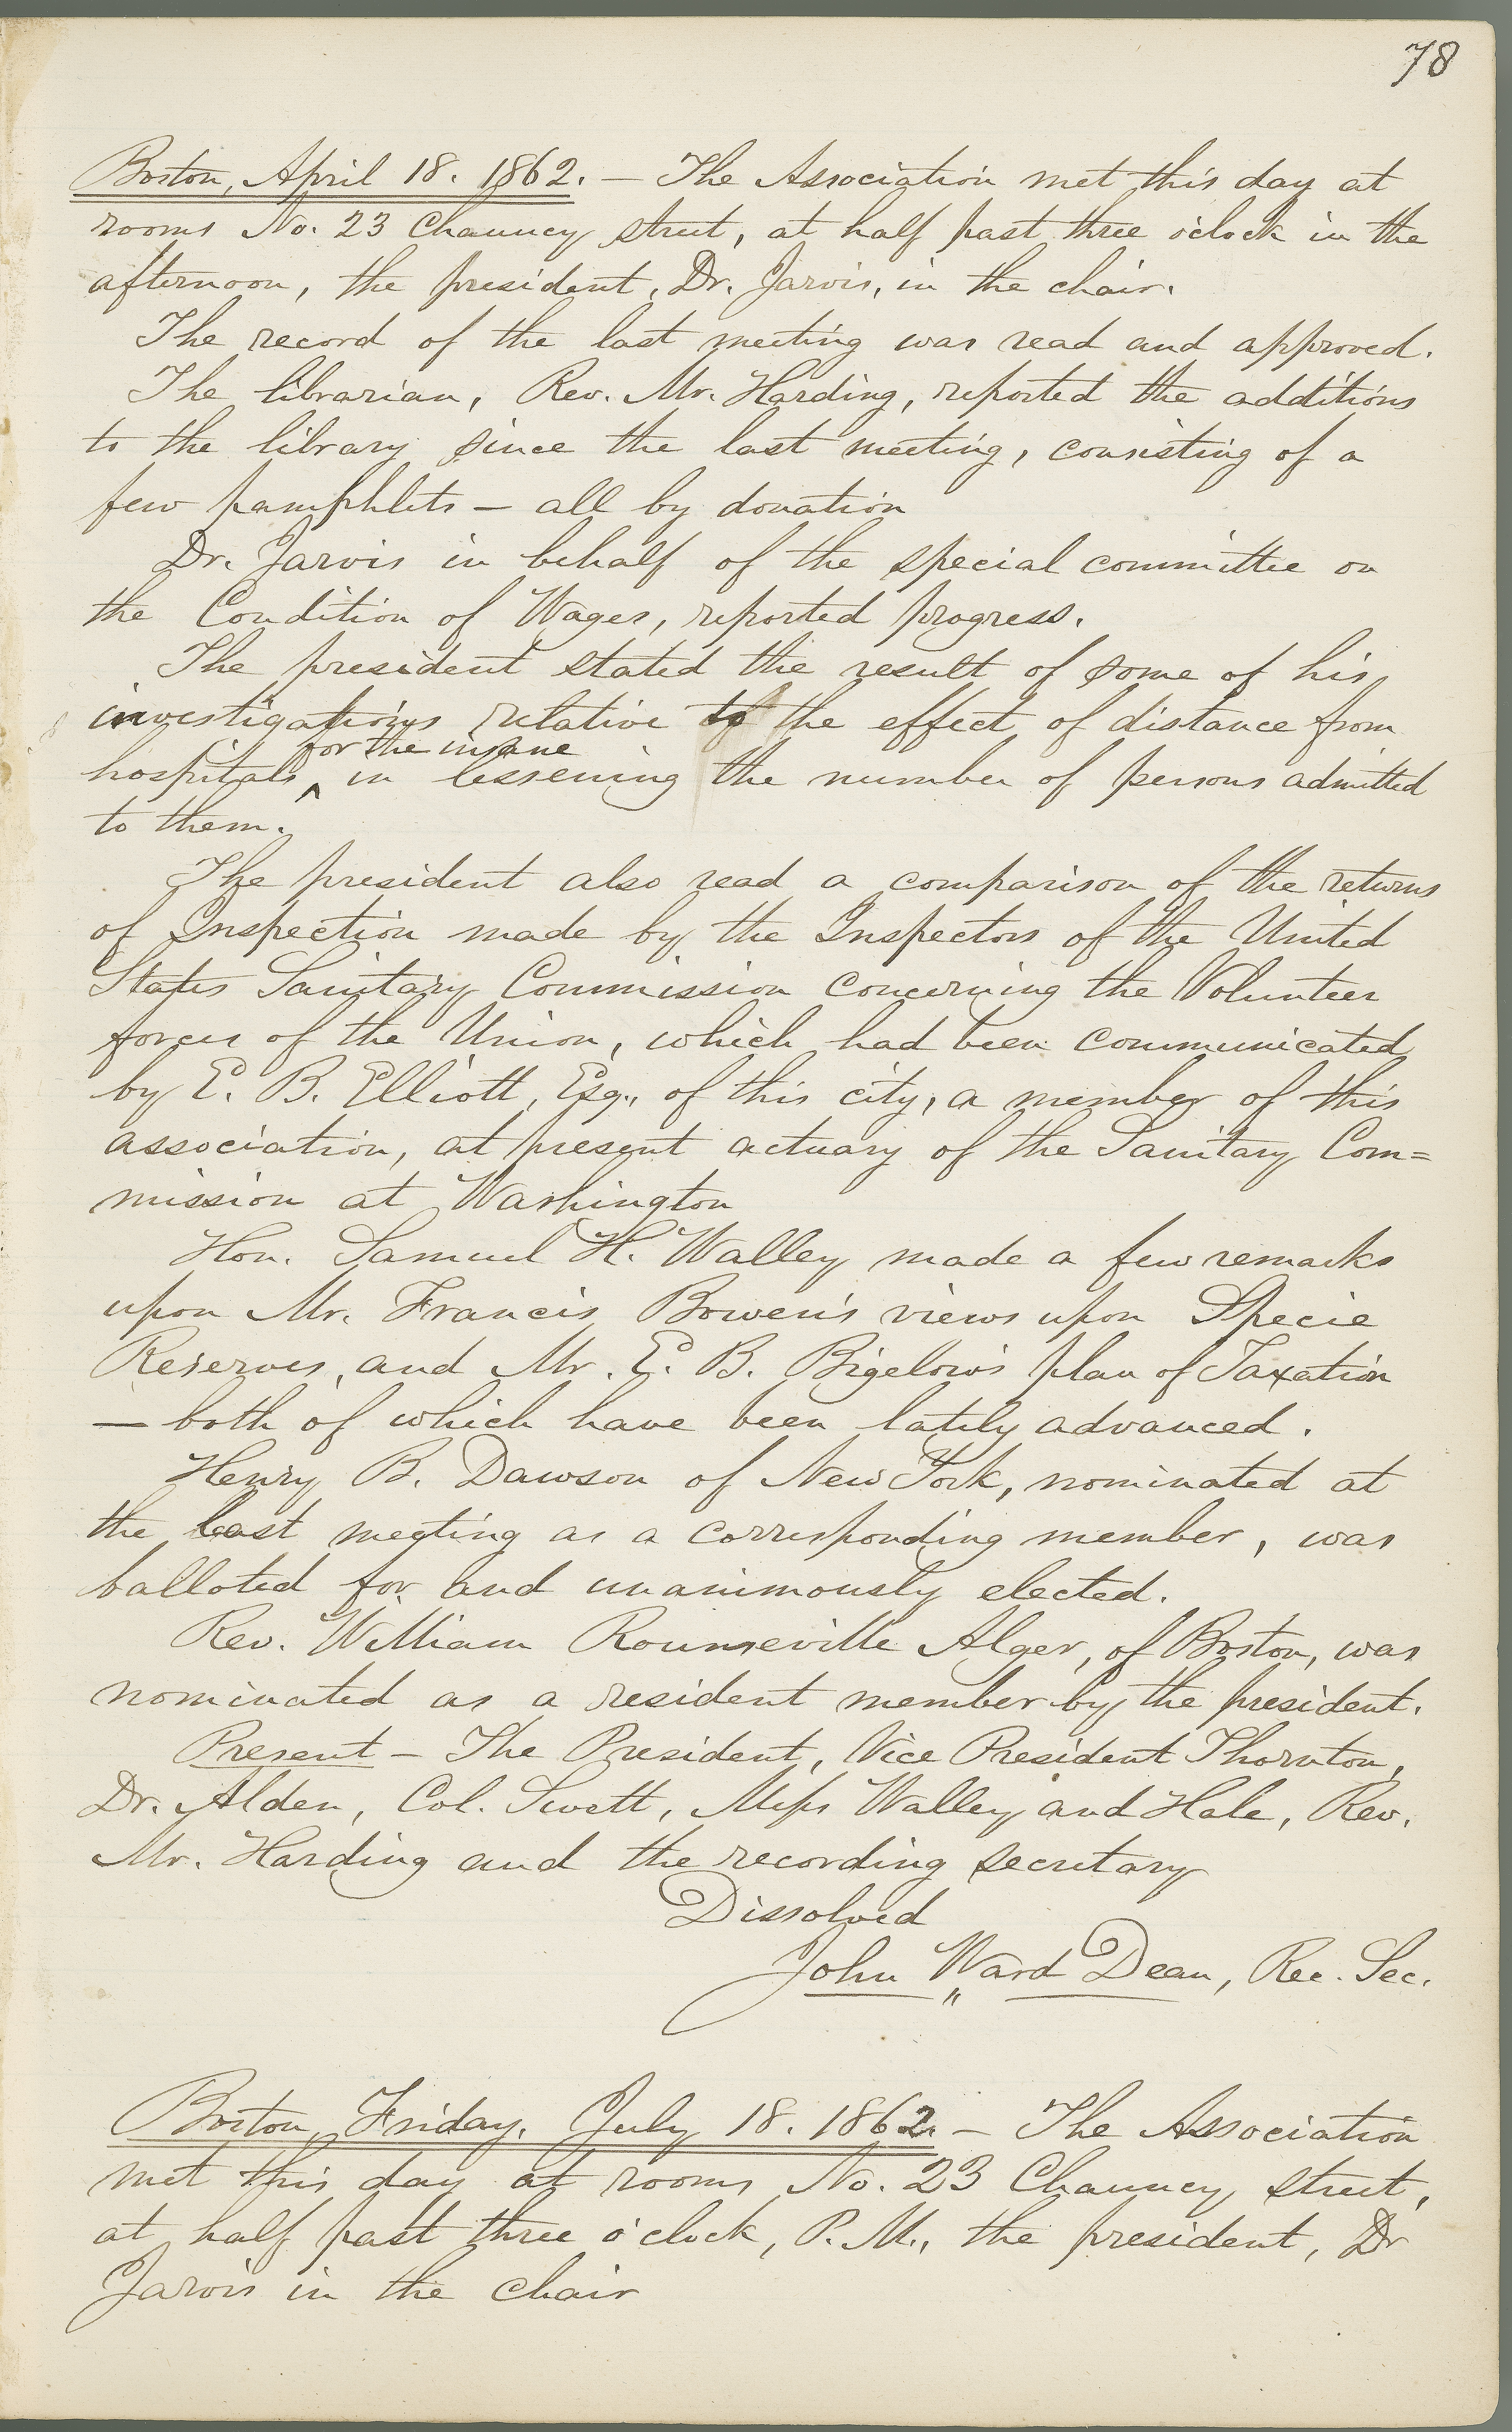 78
Boston, April 18. 1862. — The Association met this day at
rooms No. 23 Chauncy street, at half past three o'clock in the
afternoon, the president, Dr. Jarvis, in the chair.
The record of the last meeting was read and approved.
The librarian, Rev. Mr. Harding, reported the additions
to the library since the last meeting, consisting of a
few pamphlets — all by donation
Dr. Jarvis in behalf of the special committee on
the Condition of Wages, reported progress.
The president stated the result of some of his
investigations relative to the effect of distance from
for the insane
hospitals ‸ in lessening the number of persons admitted
to them.
The president also read a comparison of the returns
of Inspection made by the Inspectors of the United
States Sanitary Commission concerning the Volunteer
forces of the Union, which had been communicated
by E. B. Elliott, Esq., of this city, a member of this
association, at present actuary of the Sanitary Com=
mission at Washington
Hon. Samuel H. Walley made a few remarks
upon Mr. Francis Bowen's views upon Specie
Reserves, and Mr. E. B. Bigelow's plan of Taxation
— both of which have been lately advanced.
Henry B. Dawson of New York, nominated at
the last meeting as a corresponding member, was
balloted for and unanimously elected.
Rev. William Rounseville Alger, of Boston, was
nominated as a resident member by the president.
Present — The President, Vice President Thornton,
Dr. Alden, Col. Swett, Messrs Walley and Hale, Rev.
Mr. Harding and the recording secretary
Dissolved
John Ward Dean, Rec. Sec.
Boston, Friday, July 18. 1862. — The Association
met this day at rooms No. 23 Chauncy street,
at half past three o'clock, P. M., the president, Dr
Jarvis in the chair